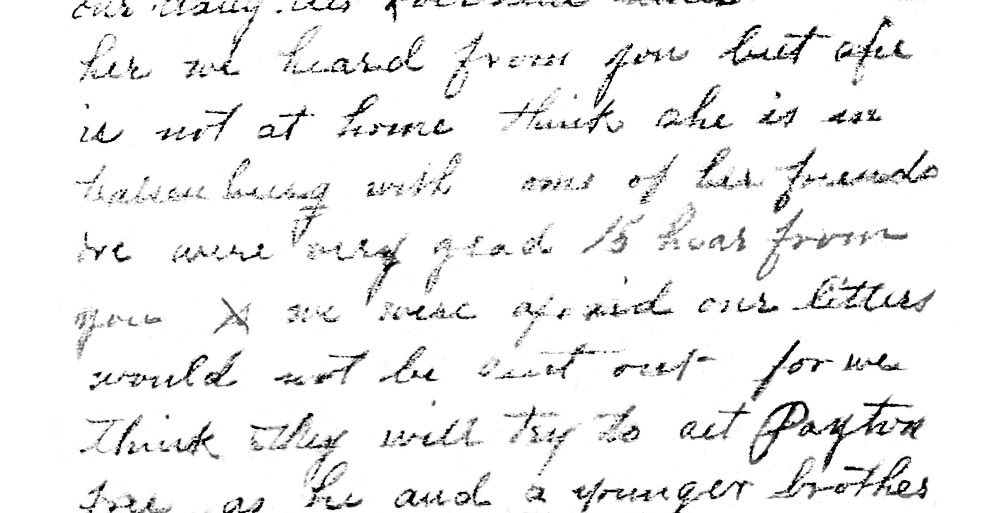 our
her we heard from you but she
is not at home think she is in
with one of her friends
we were very glad to hear from
you X we were afraid our letters
would not be sent out for we
think they will try to Payton
as he and a younger brother